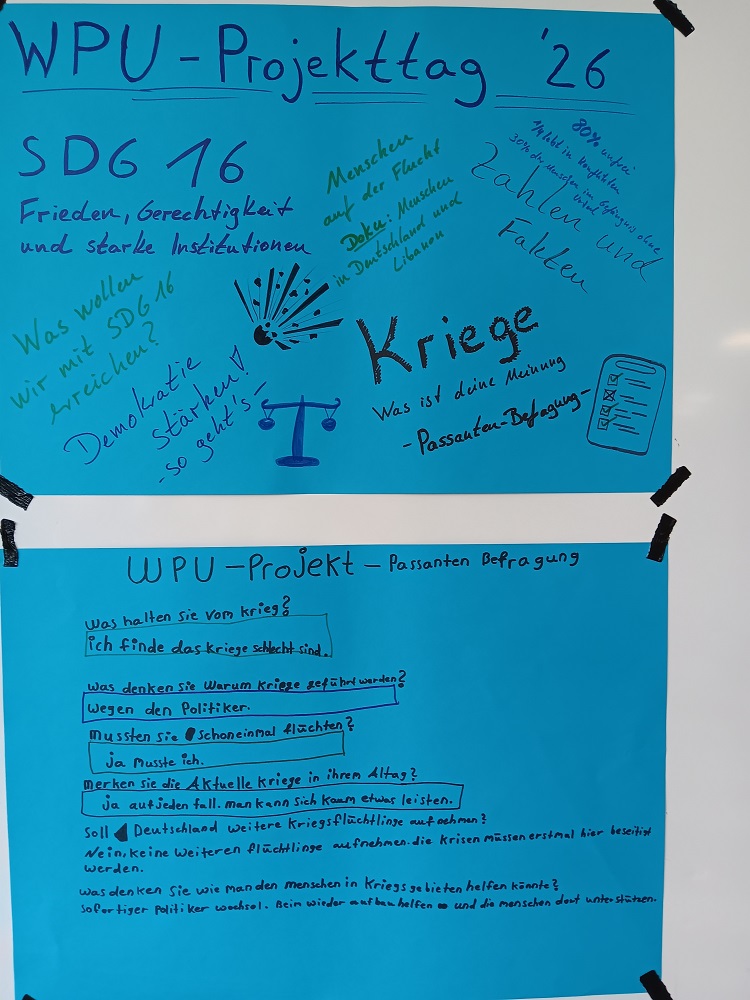 WPU - Projekttag '26
SDG 16
Frieden, Gerechtigkeit
und starke Institutionen
Menschen
auf der Flucht
Doku: Menschen
in Deutschland und
Libanon
80% unfrei
1/4 lebt in Konflikten
30% der Menschen im Gefängnis ohne
Urteil
Zahlen und
Fakten
Was wollen
wir mit SDG 16
erreichen?
Demokratie
stärken!
- so geht's -
Kriege
Was ist deine Meinung
- Passanten-Befragung -
WPU - Projekt - Passanten Befragung
Was halten Sie vom Krieg?
ich finde das Kriege schlecht sind.
Was denken sie Warum Kriege geführt werden?
Wegen den Politiker.
mussten Sie schoneinmal flüchten?
ja musste ich.
merken sie die Aktuelle Kriege in ihrem Altag?
ja aufjeden fall. man kann sich kaum etwas leisten.
Soll Deutschland weitere Kriegsflüchtlinge aufnehmen?
Nein, keine weiteren flüchtlinge aufnehmen. die Krisen müssen erstmal hier beseitigt
werden.
Was denken Sie wie man den menschen in Kriegsgebieten helfen könnte?
Sofortiger Politiker wechsel. Beim wieder aufbau helfen und die menschen dort unterstützen.